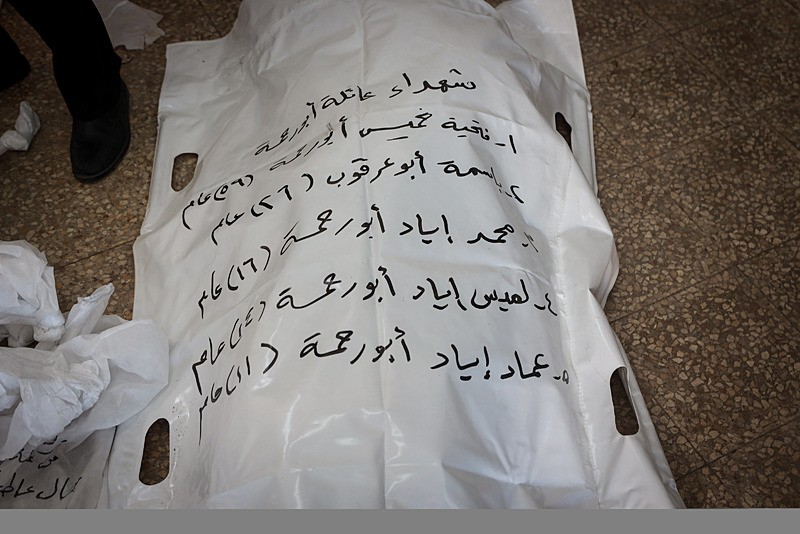 شهداء عائلة أبو رحمة
١- فتحية خميس أبو رحمة (٥٦) عام
٢- باسمة أبو عرقوب (٢٦) عام
٣- محمد إياد أبو رحمة (١٦) عام
٤- لميس إياد أبو رحمة (١٤) عام
٥- عماد إياد أبو رحمة (١١) عام